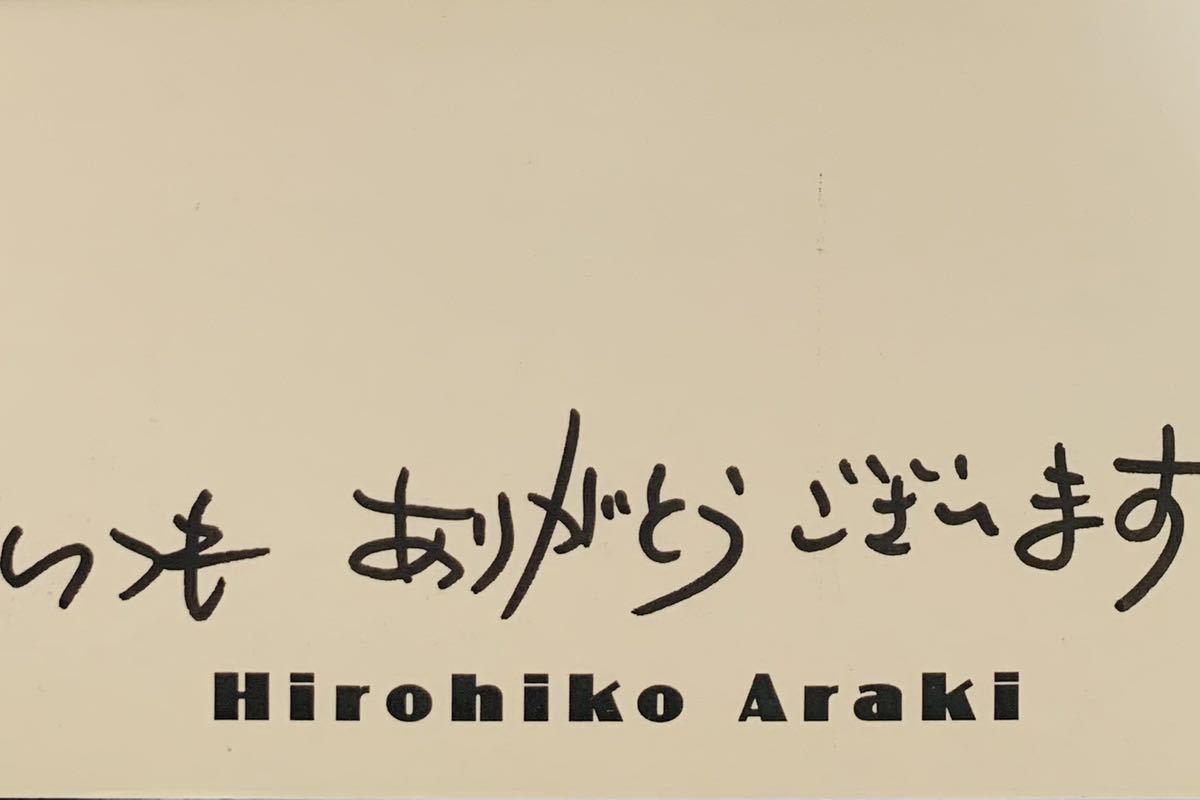 いつも ありがとうございます
Hirohiko Araki